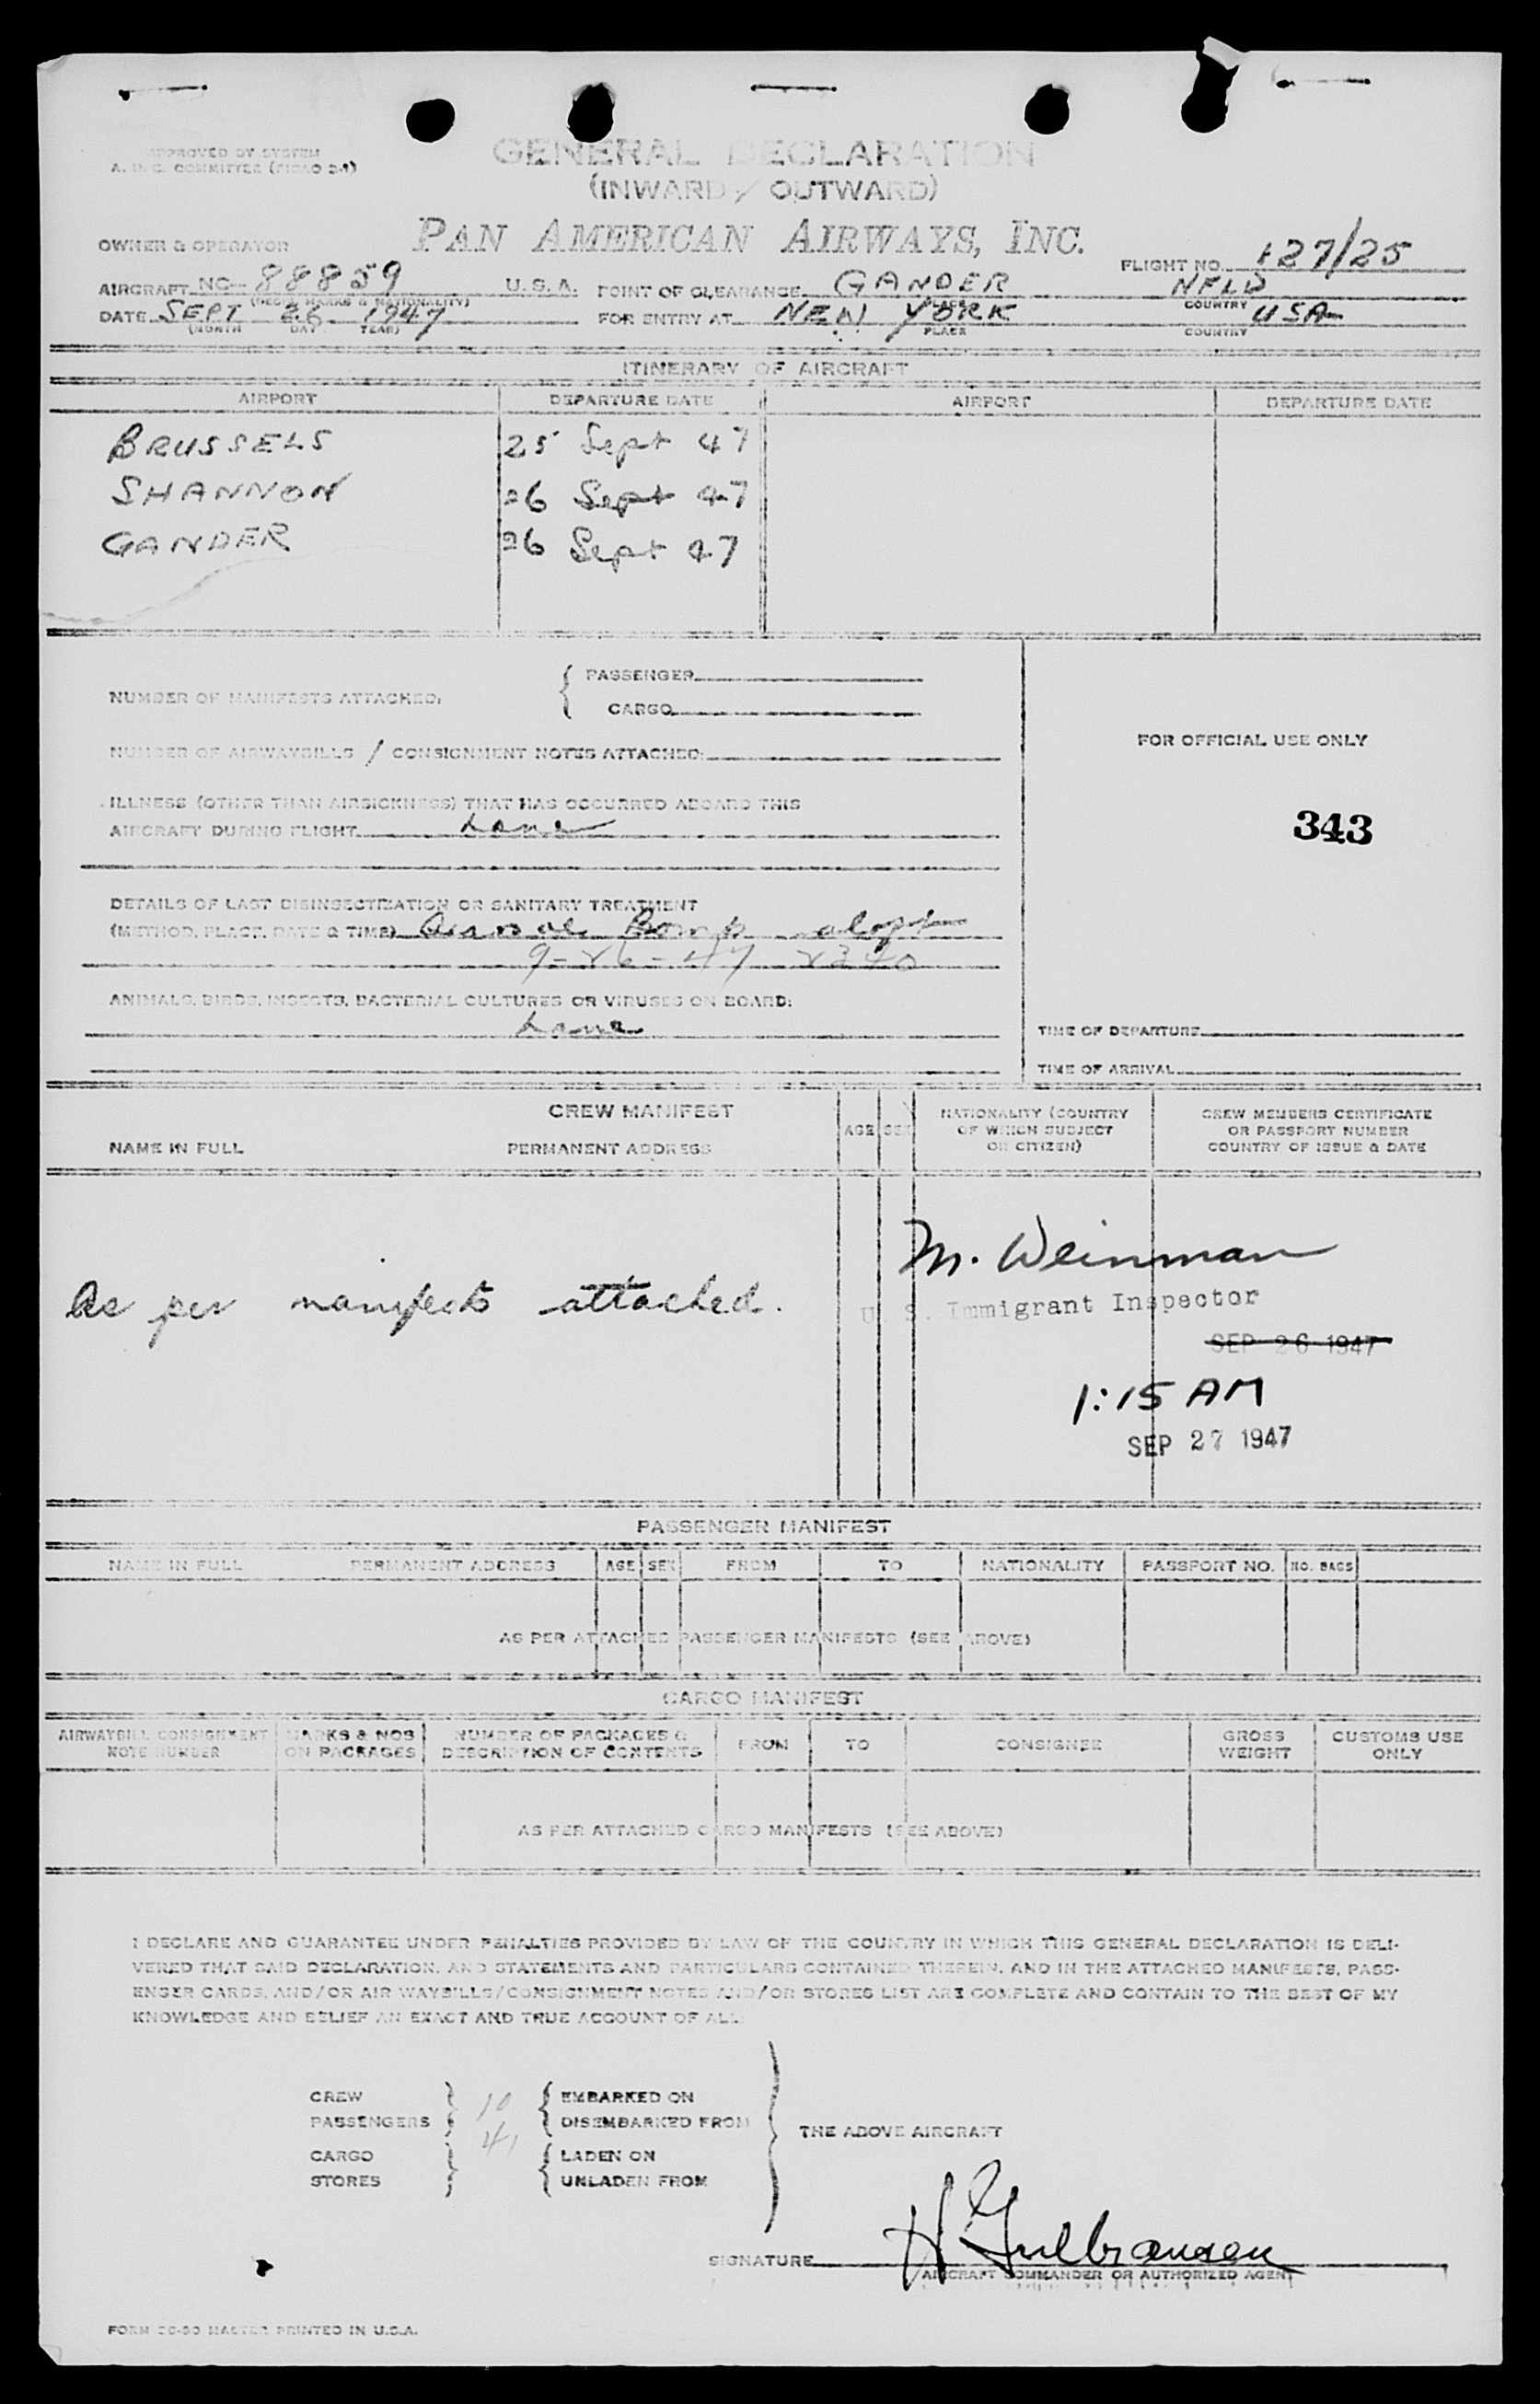 APPROVED BY SYSTEM
A. D. C. COMMITTEE
GENERAL DECLARATION
(INWARD / OUTWARD)
PAN AMERICAN AIRWAYS, INC.
OWNER & OPERATOR
FLIGHT NO. 127/25
AIRCRAFT NC- 88859 U. S. A. POINT OF CLEARANCE GANDER NFLD
(REGN. MARKS & NATIONALITY) PLACE COUNTRY
DATE SEPT 26 1947 FOR ENTRY AT NEW YORK USA
(MONTH DAY YEAR) PLACE COUNTRY
ITINERARY OF AIRCRAFT
AIRPORT DEPARTURE DATE AIRPORT DEPARTURE DATE
BRUSSELS 25 Sept 47
SHANNON 26 Sept 47
GANDER 26 Sept 47
PASSENGER
NUMBER OF MANIFESTS ATTACHED:
CARGO
FOR OFFICIAL USE ONLY
NUMBER OF AIRWAYBILLS / CONSIGNMENT NOTES ATTACHED:
ILLNESS (OTHER THAN AIRSICKNESS) THAT HAS OCCURRED ABOARD THIS
AIRCRAFT DURING FLIGHT
343
DETAILS OF LAST DISINSECTIZATION OR SANITARY TREATMENT
(METHOD, PLACE, DATE & TIME) Bomb
9-26-47 2340
ANIMALS, BIRDS, INSECTS, BACTERIAL CULTURES OR VIRUSES ON BOARD:
TIME OF DEPARTURE
TIME OF ARRIVAL
CREW MANIFEST
NAME IN FULL PERMANENT ADDRESS AGE SEX NATIONALITY (COUNTRY OF WHICH SUBJECT OR CITIZEN) CREW MEMBERS CERTIFICATE OR PASSPORT NUMBER COUNTRY OF ISSUE & DATE
M. Weinman
As per manifests attached.
U. S. Immigrant Inspector
SEP 26 1947
1:15 AM
SEP 27 1947
PASSENGER MANIFEST
NAME IN FULL PERMANENT ADDRESS AGE SEX FROM TO NATIONALITY PASSPORT NO. NO. BAGS
AS PER ATTACHED PASSENGER MANIFESTS (SEE ABOVE)
CARGO MANIFEST
AIRWAYBILL CONSIGNMENT NOTE NUMBER MARKS & NOS ON PACKAGES NUMBER OF PACKAGES & DESCRIPTION OF CONTENTS FROM TO CONSIGNEE GROSS WEIGHT CUSTOMS USE ONLY
AS PER ATTACHED CARGO MANIFESTS (SEE ABOVE)
I DECLARE AND GUARANTEE UNDER PENALTIES PROVIDED BY LAW OF THE COUNTRY IN WHICH THIS GENERAL DECLARATION IS DELI-
VERED THAT SAID DECLARATION, AND STATEMENTS AND PARTICULARS CONTAINED THEREIN, AND IN THE ATTACHED MANIFESTS, PASS-
ENGER CARDS, AND/OR AIR WAYBILLS/CONSIGNMENT NOTES AND/OR STORES LIST ARE COMPLETE AND CONTAIN TO THE BEST OF MY
KNOWLEDGE AND BELIEF AN EXACT AND TRUE ACCOUNT OF ALL:
CREW 10 EMBARKED ON
PASSENGERS 41 DISEMBARKED FROM
THE ABOVE AIRCRAFT
CARGO LADEN ON
STORES UNLADEN FROM
SIGNATURE H Gulbransen
AIRCRAFT COMMANDER OR AUTHORIZED AGENT
FORM MASTER PRINTED IN U.S.A.